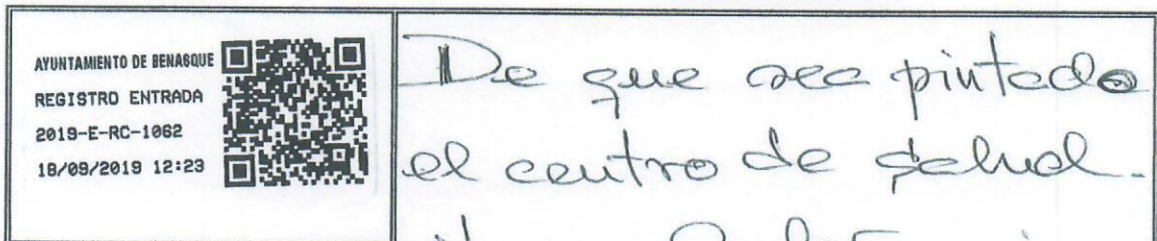 AYUNTAMIENTO DE BENASQUE
REGISTRO ENTRADA
2019-E-RC-1062
18/09/2019 12:23
De que sea pintado
el centro de salud.